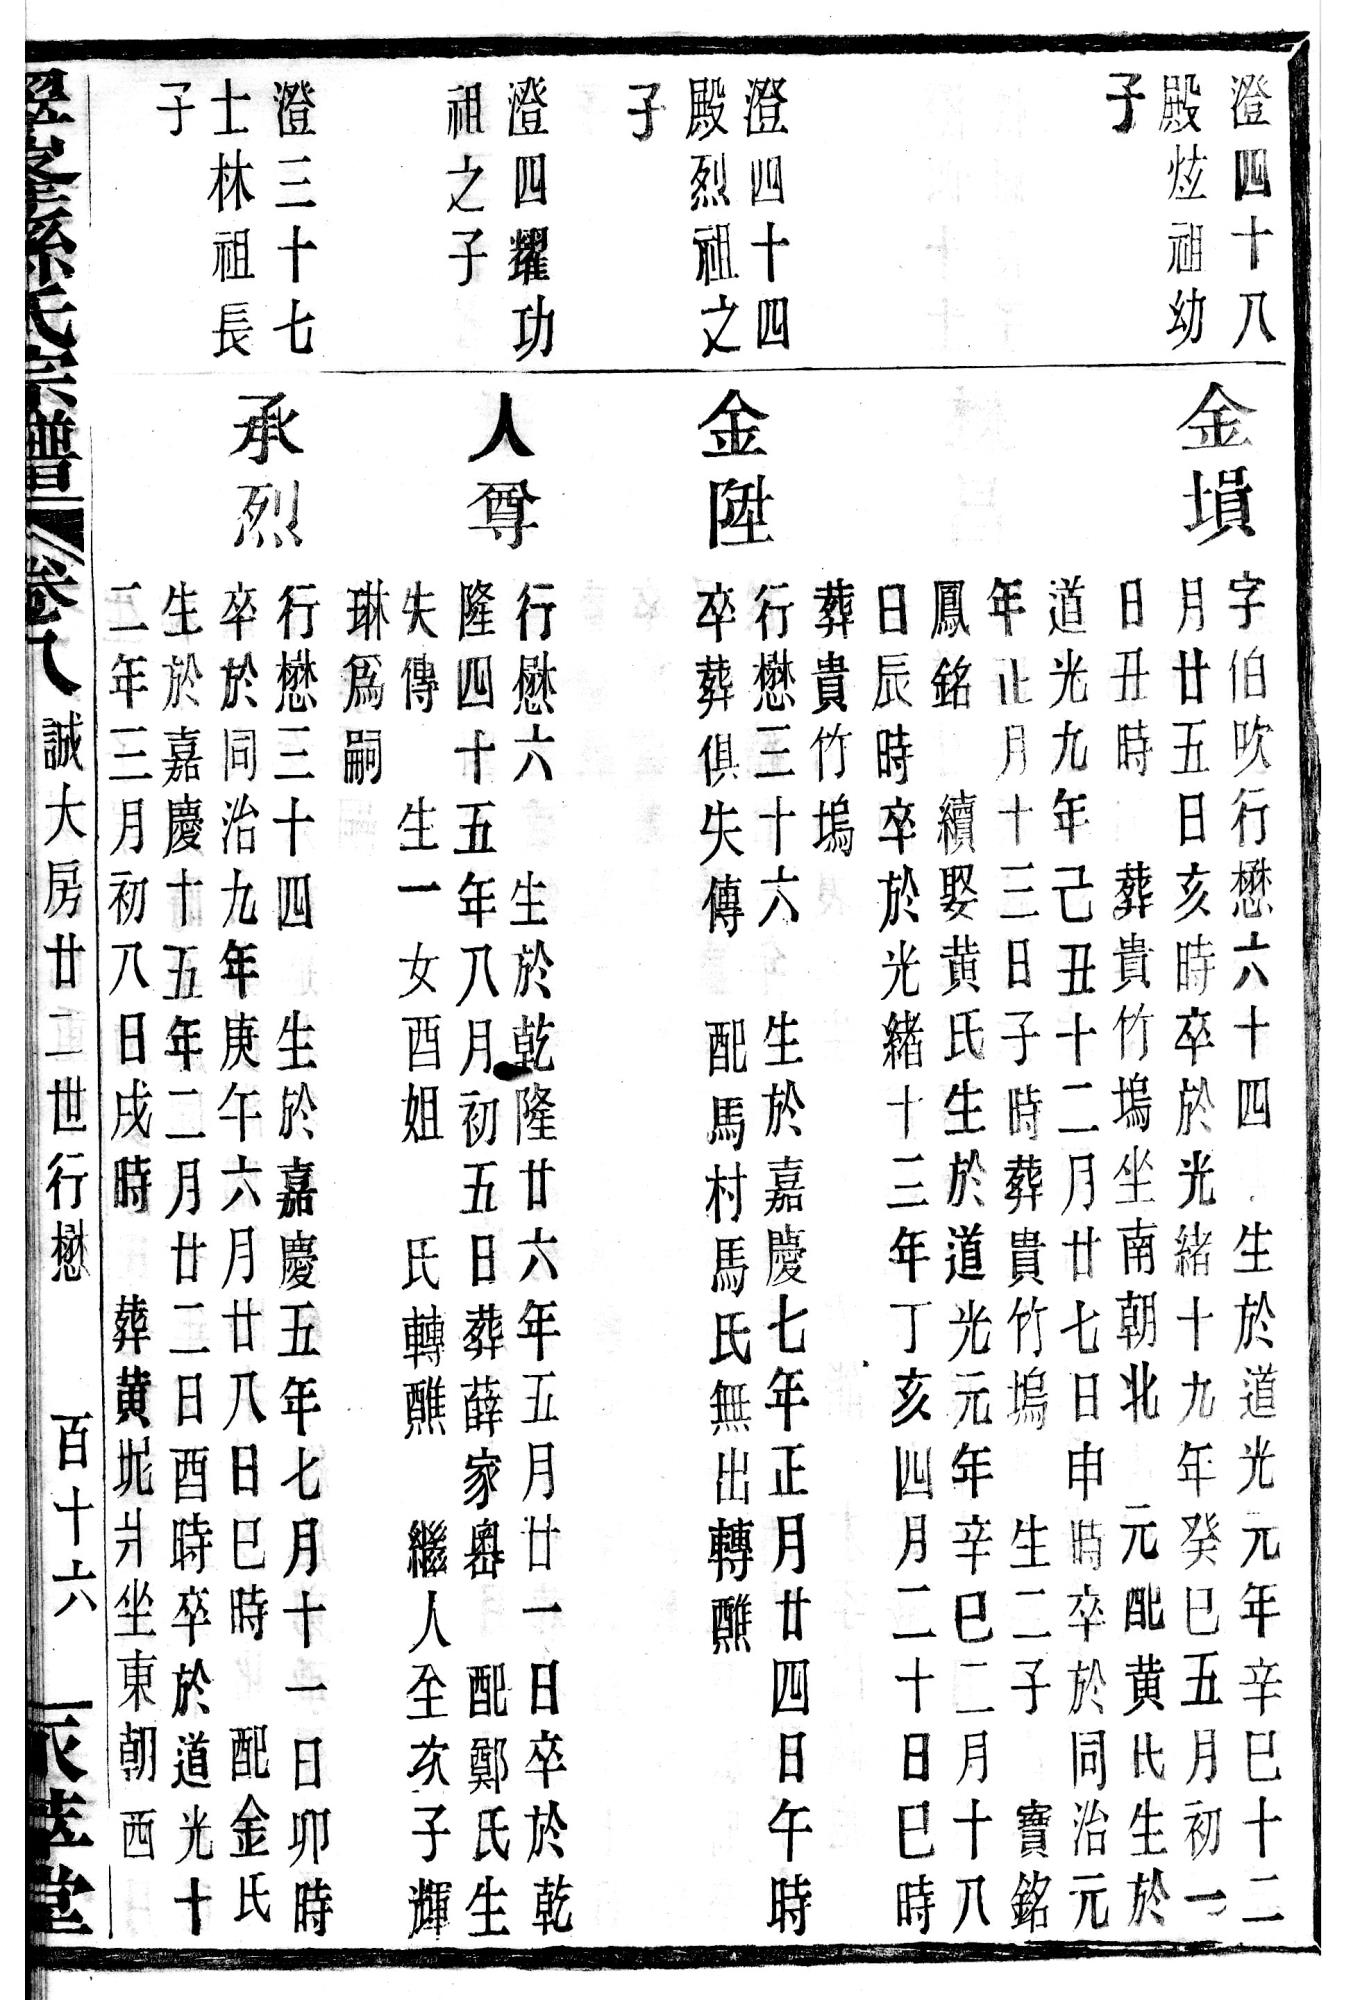 澄四十八
殿炫祖幼
子
金塤
字伯吹行懋六十四　生於道光元年辛巳十二
月廿五日亥時卒於光緒十九年癸巳五月初一
日丑時　葬貴竹塢坐南朝北　元配黃氏生於
道光九年己丑十二月廿七日申時卒於同治元
年正月十三日子時葬貴竹塢　生二子　寶銘
鳳銘　續娶黃氏生於道光元年辛巳二月十八
日辰時卒於光緒十三年丁亥四月二十日巳時
葬貴竹塢
澄四十四
殿烈祖之
子
金陞
行懋三十六　生於嘉慶七年正月廿四日午時
卒葬俱失傳　配馬村馬氏無出轉醮
澄四耀功
祖之子
人尊
行懋六　生於乾隆廿六年五月廿一日卒於乾
隆四十五年八月初五日葬薛家嶴　配鄭氏生
失傳　生一女酉姐　氏轉醮　繼人至次子輝
琳爲嗣
澄三十七
士林祖長
子
承烈
行懋三十四　生於嘉慶五年七月十一日卯時
卒於同治九年庚午六月廿八日巳時　配金氏
生於嘉慶十五年二月廿二日酉時卒於道光十
二年三月初八日戌時　葬黃坭爿坐東朝西
孫氏宗譜　卷八　誠大房廿二世行懋　百十六　堂